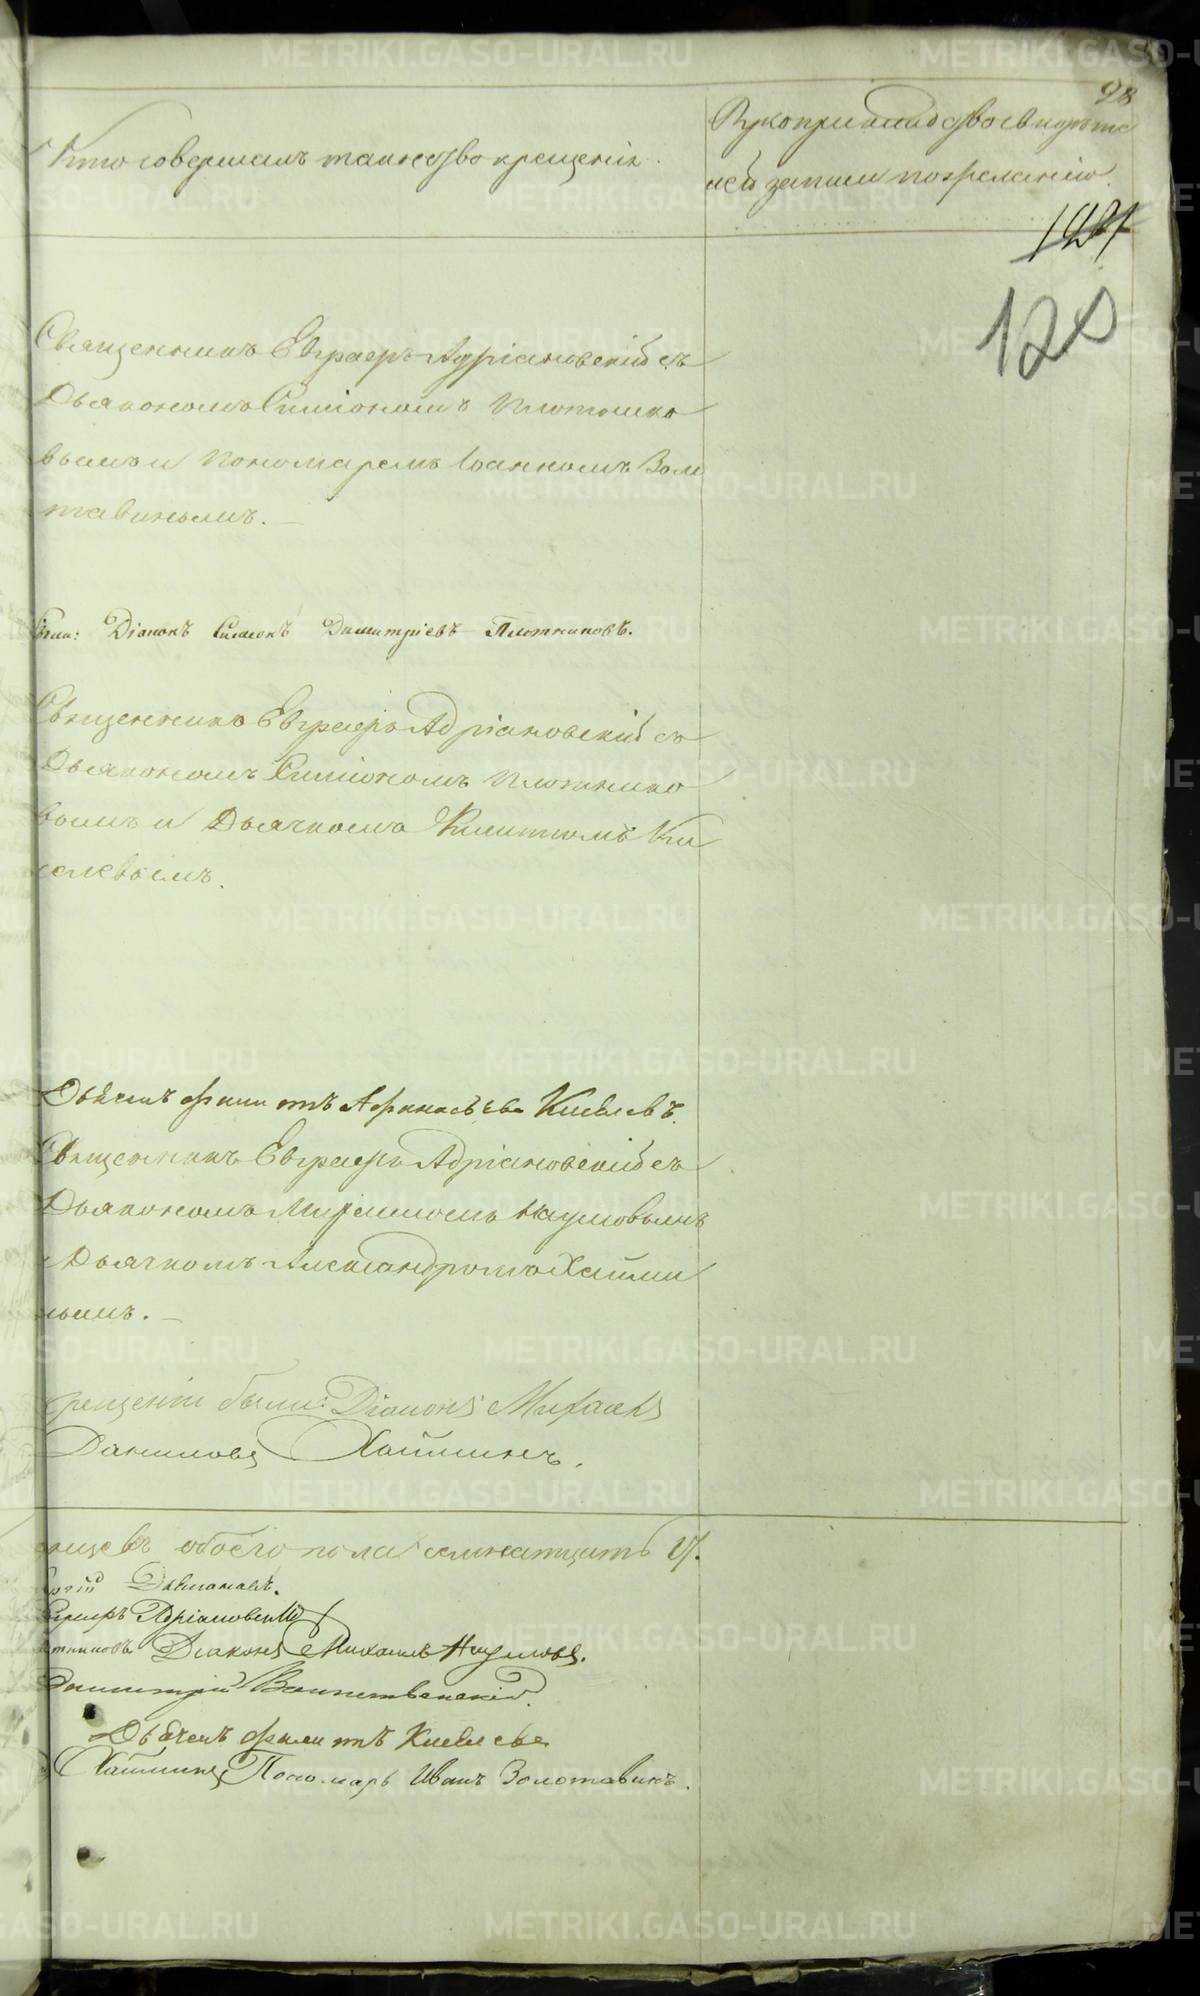 98
Кто совершалъ таинство крещенія.
Рукоприкладство свидѣте
лей записи по желанію.
128
Священникъ Евграфъ Адріановскій съ
Дьякономъ Симіономъ Плотнико
вымъ и Пономаремъ Іоанномъ Золо
тавинымъ.
были: Діаконъ Симеонъ Димитріевъ Плотниковъ.
Священникъ Евграфъ Адріановскій съ
Дьякономъ Симіономъ Плотнико
вымъ и Дьячкомъ Ки
селевымъ.
Дьячекъ Филиптъ Афанасьевъ Киселевъ.
Священникъ Евграфъ Адріановскій съ
Дьякономъ Наумовымъ
Дьячкомъ Александромъ Хайми
нымъ.
крещеніи были: Діаконъ Михаилъ
Даниловъ Хайминъ.
обоего пола семнатцать 17.
Адріановскій
Діаконъ Михаилъ Наумовъ.
Димитрій
Дьячекъ Киселевъ
Хайминъ Пономарь Иванъ Золотавинъ.
METRIKI.GASO-URAL.RU